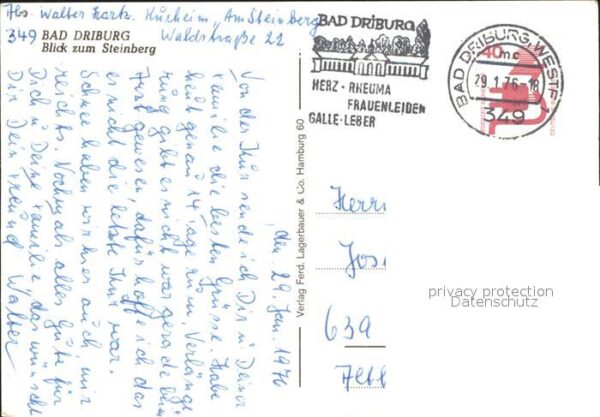 Abs. Walter Hartz. Kurheim "Am Steinberg
Waldstraße 22
349 BAD DRIBURG
Blick zum Steinberg
den 29. Jan. 1976
Von der Kur sende ich Dir u. Deiner
Familie die besten Grüsse. Habe
heut genau 14 Tage rum, Verlänge
rung gibt es nicht war gerade beim
Arzt gewesen, dafür hoffe ich das
es nicht die letzte Kur war.
Schnee haben wir hier auch, mir
reichts. Nochmals alles Gute für
Dich u. Deine Familie, das wünscht
Dir Dein Freund Walter
Verlag Ferd. Lagerbauer & Co. Hamburg 60
BAD DRIBURG
HERZ · RHEUMA
FRAUENLEIDEN
GALLE · LEBER
BAD DRIBURG, WESTF 1
29.1.76-18
349
40
Herrn
Jos
639
privacy protection
Datenschutz